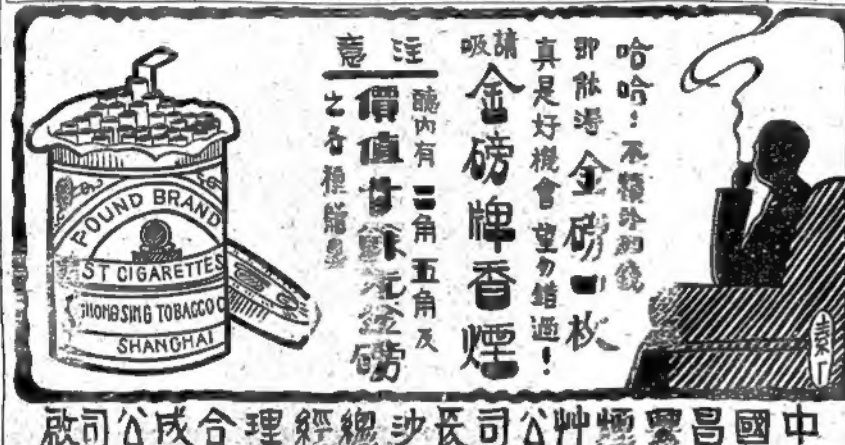 哈哈！不積外的錢
即能得金磅一枚
真是好機會望勿錯過！
請吸
金磅牌香煙
注意
聽內有二角五角及
價值廿餘元金磅
之各種贈品
POUND BRAND
ST CIGARETTES
HONG SING TOBACCO C
SHANGHAI
中國昌興煙艸公司長沙總經理合成公司啟